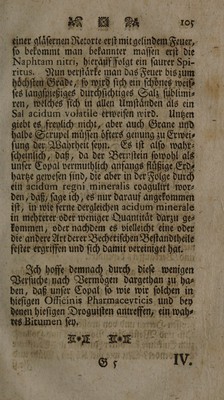 105
einer gläsernen Retorte erst mit gelindem Feuer,
so bekommt man bekannter massen erst die
Naphtam nitri, hierauf folgt ein saurer Spi-
ritus. Nun verstärke man das Feuer bis zum
höchsten Grade, so wird sich ein schönes weis-
ses langspießiges durchsichtiges Sal sublimi-
ren, welches sich in allen Umständen als ein
Sal acidum volatile erweisen wird. Unzen
giebt es freylich nicht, aber auch Grane und
halbe Scrupel müssen öfters genung zu Erwei-
sung der Wahrheit seyn. Es ist also wahr-
scheinlich, daß, da der Bernstein sowohl als
unser Copal vermuthlich anfangs flüßige Erd-
harze gewesen sind, die aber in der Folge durch
ein acidum regni mineralis coagulirt wor-
den, daß, sage ich, es nur darauf angekommen
ist, in wie ferne dergleichen acidum mineralis
in mehrerer oder weniger Quantität darzu ge-
kommen, oder nachdem es vielleicht eine oder
die andere Art derer Bechetischen Bestandtheile
fester ergriffen und sich damit vereiniget hat.
Ich hoffe demnach durch diese wenigen
Versuche nach Vermögen dargethan zu ha-
ben, daß unser Copal so wie wir solchen in
hiesigen Officinis Pharmacevticis und bey
denen hiesigen Droguisten antreffen, ein wah-
res Bitumen sey.
G 5
IV.